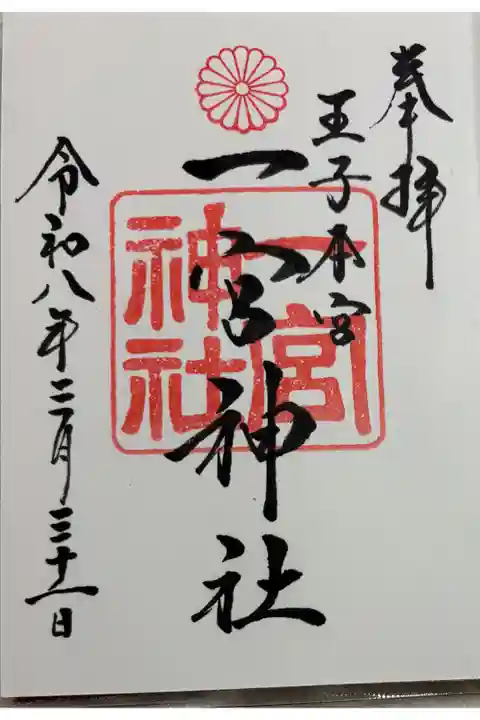 奉拝
王子本宮
一宮神社
一宮
神社
令和八年二月三十一日